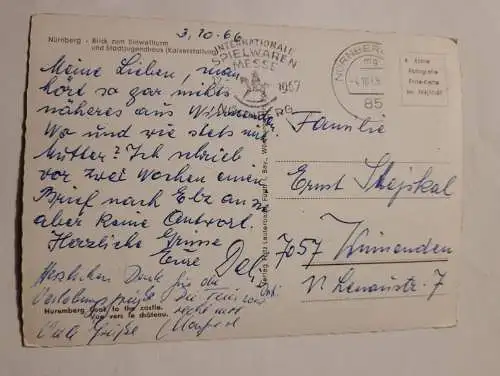 3.10.66
Nürnberg - Blick zum Sinwellturm
und Stadtjugendhaus (Kaiserstallung)
INTERNATIONALE
SPIELWAREN
MESSE
1967
NÜRNBERG
NÜRNBERG
85
Echte
Fotografie
Meine Lieben, man
hört so gar nichts
näheres aus
Wo und wie steht
Mutter? Ich schrieb
vor zwei Wochen einen
Brief nach
aber keine Antwort.
Herzliche Grüsse
Eure
Herzlichen Dank für die
Die Feier war
recht nett
Viele Grüße Manfred
Nuremberg Look to the castle.
Vue vers le château.
Familie
Ernst Skejskal
7057 Winnenden
Lenaustr. 7